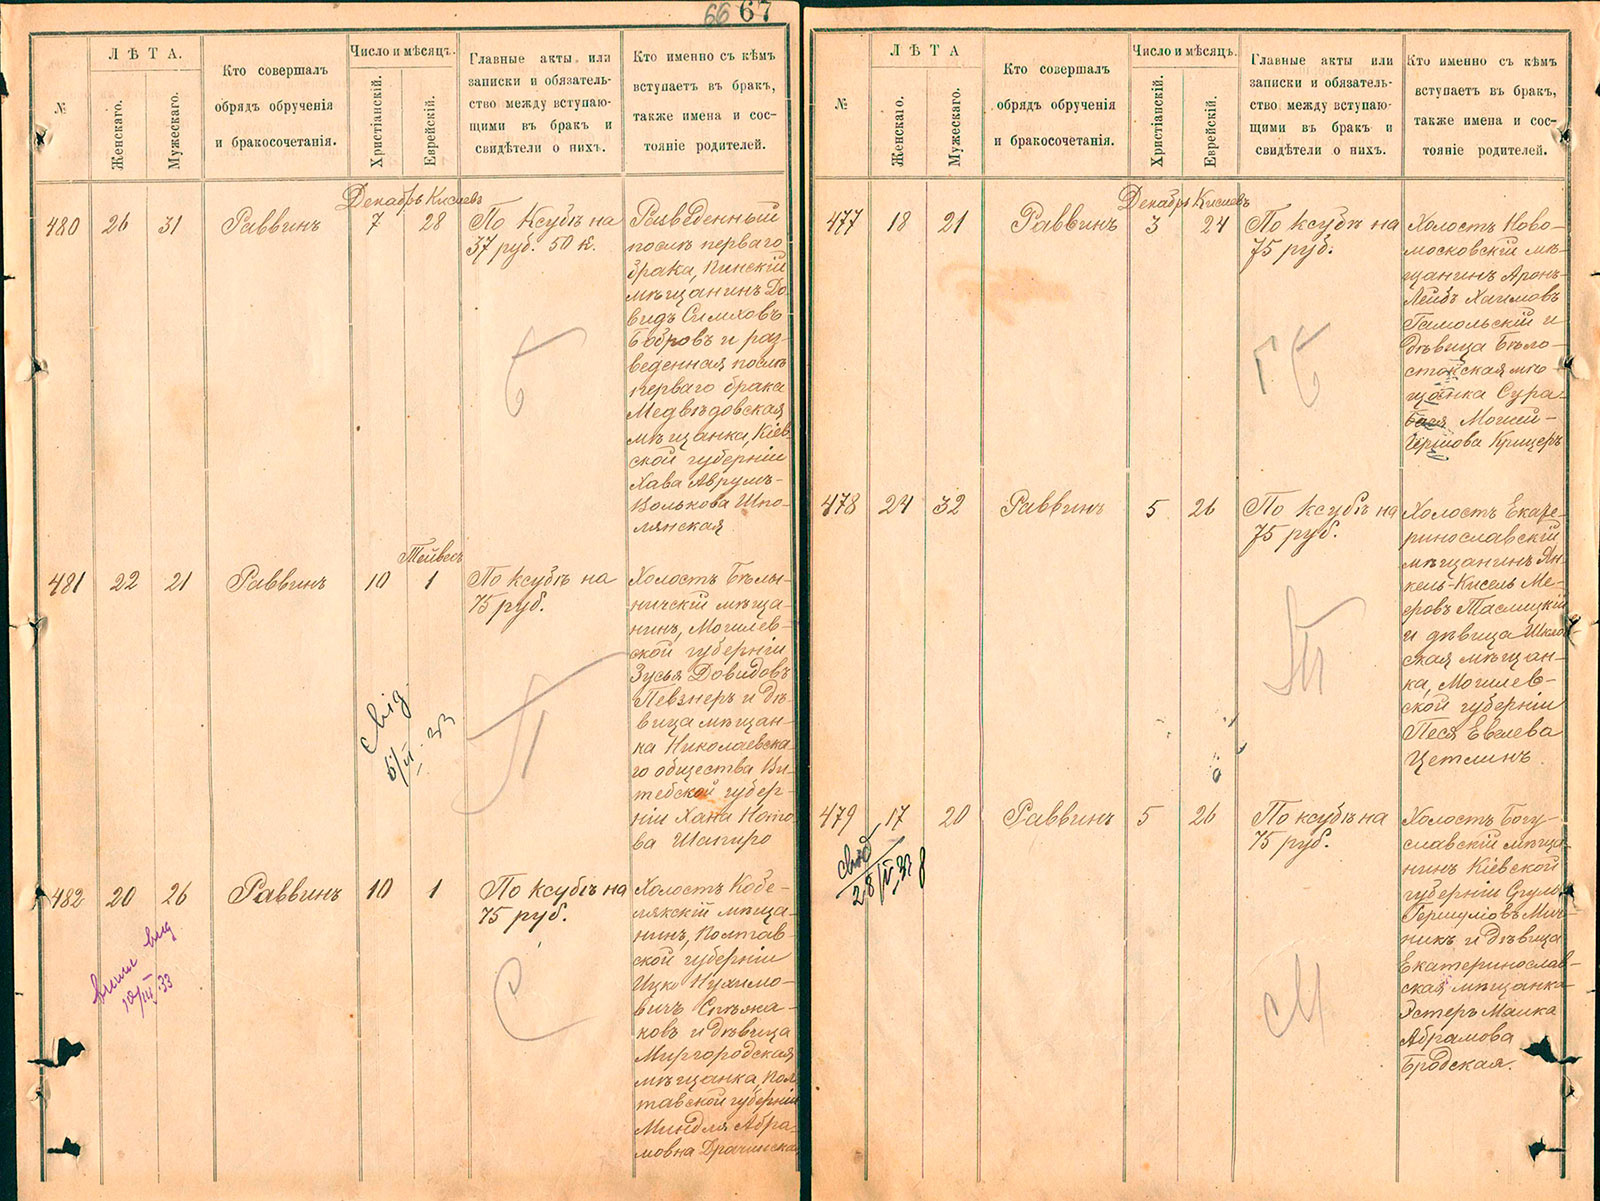 66 67
№
ЛѢТА.
Женскаго.
Мужескаго.
Кто совершалъ
обрядъ обрученія
и бракосочетанія.
Число и мѣсяцъ.
Христіанскій.
Еврейскій.
Главные акты или
записки и обязатель-
ство между вступаю-
щими въ бракъ и
свидѣтели о нихъ.
Кто именно съ кѣмъ
вступаетъ въ бракъ,
также имена и сос-
тояніе родителей.
Декабрь Кислевъ
480 26 31 Раввинъ 7 28
По ксубѣ на
37 руб. 50 к.
Разведенный
послѣ перваго
брака, Пинскій
мѣщанинъ До-
видъ Симховъ
Бобровъ и раз-
веденная послѣ
перваго брака
Медвѣдовская
мѣщанка, Кіев-
ской губерніи
Хава Аврумъ-
Волькова Шпо-
лянская.
Б
Тейвесъ
481 22 21 Раввинъ 10 1
По ксубѣ на
75 руб.
Холостъ Бѣлы-
ничскій мѣща-
нинъ, Могилев-
ской губерніи
Зусья Довидовъ
Певзнеръ и дѣ-
вица мѣщан-
ка Николаевска-
го общества Ви-
тебской губер-
ніи Хана
ва Шапиро
П
482 20 26 Раввинъ 10 1
По ксубѣ на
75 руб.
Холостъ Кобе-
лякскій мѣща-
нинъ, Полтав-
ской губерніи
Ицко Нухимо-
вичъ
ковъ и дѣвица
Миргородская
мѣщанка, Пол-
тавской губерніи
Миндля Абра-
мовна Драчинская
С
10/III 33
№
ЛѢТА
Женскаго.
Мужескаго.
Кто совершалъ
обрядъ обрученія
и бракосочетанія.
Число и мѣсяцъ.
Христіанскій.
Еврейскій.
Главные акты или
записки и обязатель-
ство между вступаю-
щими въ бракъ и
свидѣтели о нихъ.
Кто именно съ кѣмъ
вступаетъ въ бракъ,
также имена и сос-
тояніе родителей.
Декабрь Кислевъ
477 18 21 Раввинъ 3 24
По ксубѣ на
75 руб.
Холостъ Ново-
московскій мѣ-
щанинъ Аронъ-
Лейбъ Хаимовъ
Гамольскій и
дѣвица Бѣло-
стокская мѣ-
щанка Сура-
Бася Мовшей-
Гершова Крицеръ
Г Б
478 24 32 Раввинъ 5 26
По ксубѣ на
75 руб.
Холостъ Екате-
ринославскій
мѣщанинъ Ян-
кель-Кисель Ме-
еровъ Тасмицкій
и дѣвица Шклов-
ская мѣщан-
ка, Могилев-
ской губерніи
Песя Евелева
Цетлинъ.
Т
479 17 20 Раввинъ 5 26
По ксубѣ на
75 руб.
Холостъ Богу-
славскій мѣща-
нинъ Кіевской
губерніи Сруль
Гершуновъ
никъ и дѣвица
Екатеринослав-
ская мѣщанка
Эстеръ Малка
Абрамова
Бродская.
М